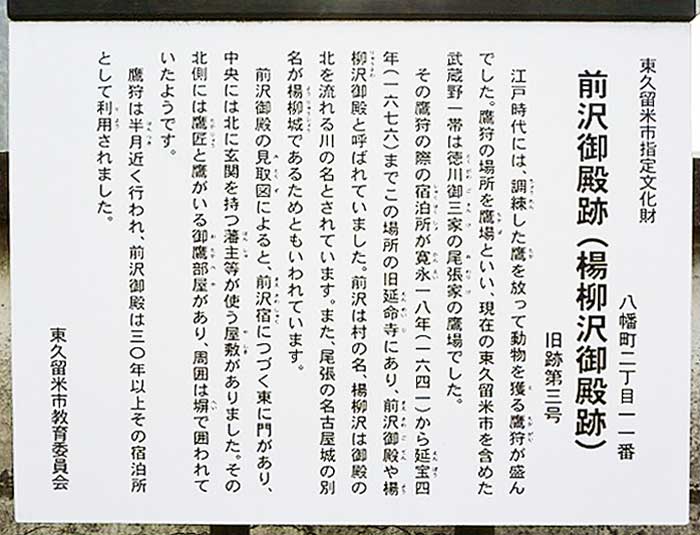 東久留米市指定文化財
八幡町二丁目一一番
前沢御殿跡（楊柳沢御殿跡）
旧跡第三号
江戸時代には、調練した鷹を放って動物を獲る鷹狩が盛ん
でした。鷹狩の場所を鷹場といい、現在の東久留米市を含めた
武蔵野一帯は徳川御三家の尾張家の鷹場でした。
その鷹狩の際の宿泊所が寛永一八年（一六四一）から延宝四
年（一六七六）までこの場所の旧延命寺にあり、前沢御殿や楊
柳沢御殿と呼ばれていました。前沢は村の名、楊柳沢は御殿の
北を流れる川の名とされています。また、尾張の名古屋城の別
名が楊柳城であるためともいわれています。
前沢御殿の見取図によると、前沢宿につづく東に門があり、
中央には北に玄関を持つ藩主等が使う屋敷がありました。その
北側には鷹匠と鷹がいる御鷹部屋があり、周囲は塀で囲われて
いたようです。
鷹狩は半月近く行われ、前沢御殿は三〇年以上その宿泊所
として利用されました。
東久留米市教育委員会